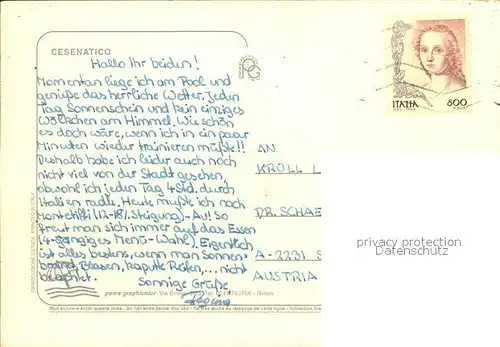 CESENATICO
Hallo Ihr beiden!
Momentan liege ich am Pool und
genieße das herrliche Wetter. Jeden
Tag Sonnenschein und kein einziges
Wölkchen am Himmel. Wie schön
es doch wäre, wenn ich in ein paar
Minuten wieder trainieren müßte!!
Deshalb habe ich leider auch noch
nicht viel von der Stadt gesehen,
obwohl ich jeden Tag 4 Std. durch
Italien radle. Heute mußte ich nach
(17-18% Steigung) - Au! So
freut man sich immer auf das Essen
(4-gängiges Menü-Wahl). Eigentlich
ist alles bestens, wenn man Sonnen-
brand, Blasen, kaputte Reifen, ... nicht
beachtet.
Sonnige Grüße
Regina
AN
KRÖLL L
DR. SCHAE
A-2231 S
AUSTRIA
ITALIA 800
privacy protection
Datenschutz
PRINTED IN ITALY
pama graphicolor Via
Non scrivere sotto questa linea - Do not write below this line - Ne rien écrire au-dessous de cette ligne - Schreiben Sie